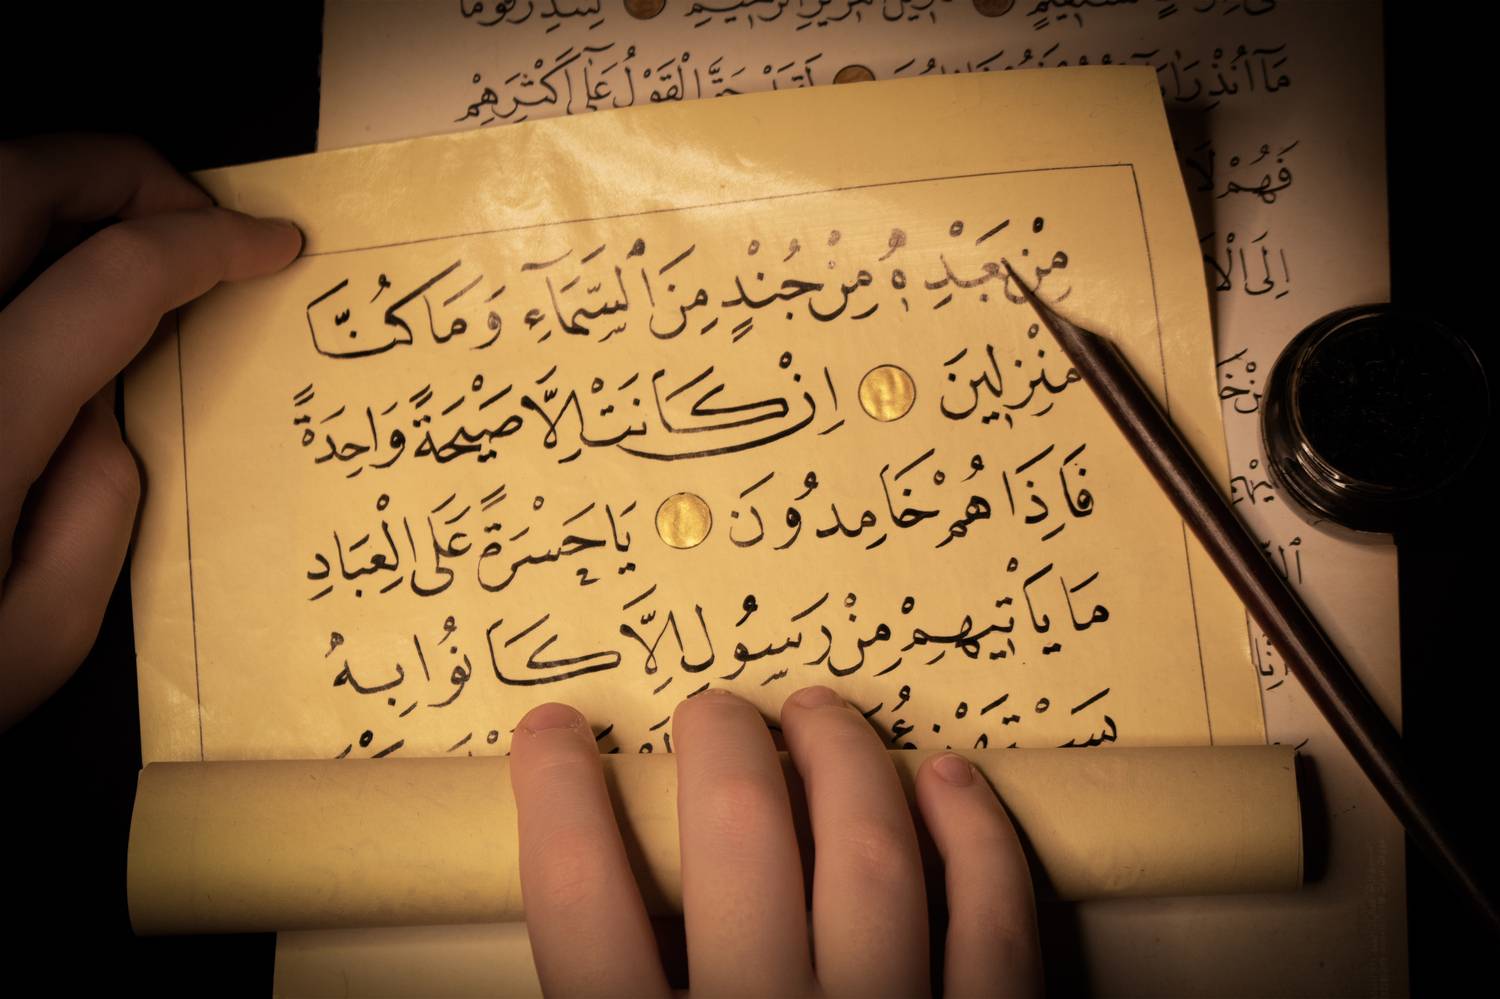 مَا أُنْذِرَ لَقَدْ حَقَّ الْقَوْلُ عَلَىٰ أَكْثَرِهِمْ
فَهُمْ لَا
إِلَى الْأَ
مِنْ بَعْدِهِ مِنْ جُنْدٍ مِنَ السَّمَآءِ وَمَا كُنَّا
مُنْزِلِينَ إِنْ كَانَتْ إِلَّا صَيْحَةً وَاحِدَةً
فَإِذَا هُمْ خَامِدُونَ يَا حَسْرَةً عَلَى الْعِبَادِ
مَا يَأْتِيهِمْ مِنْ رَسُولٍ إِلَّا كَانُوا بِهِ
يَسْتَهْزِءُ